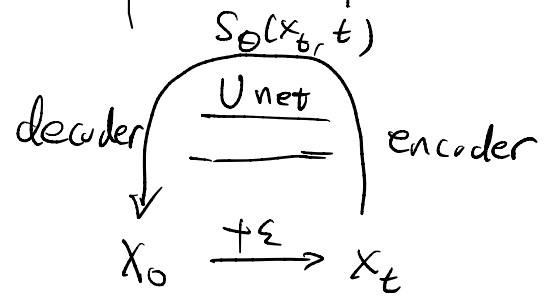 Sθ(xt, t)
Unet
decoder
encoder
x0 +ε xt